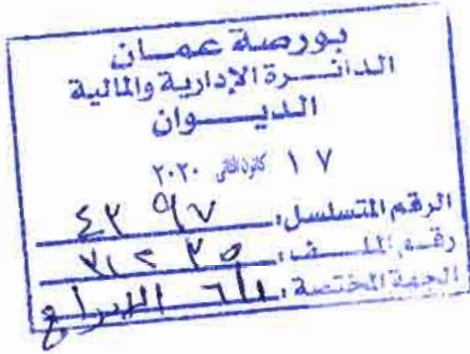 بورصة عمان
الدائرة الإدارية والمالية
الديوان
١٧ كانون الثاني ٢٠٢٠
الرقم المتسلسل: ٤٣٩٧
رقم الملف:
الجهة المختصة: الإدراج